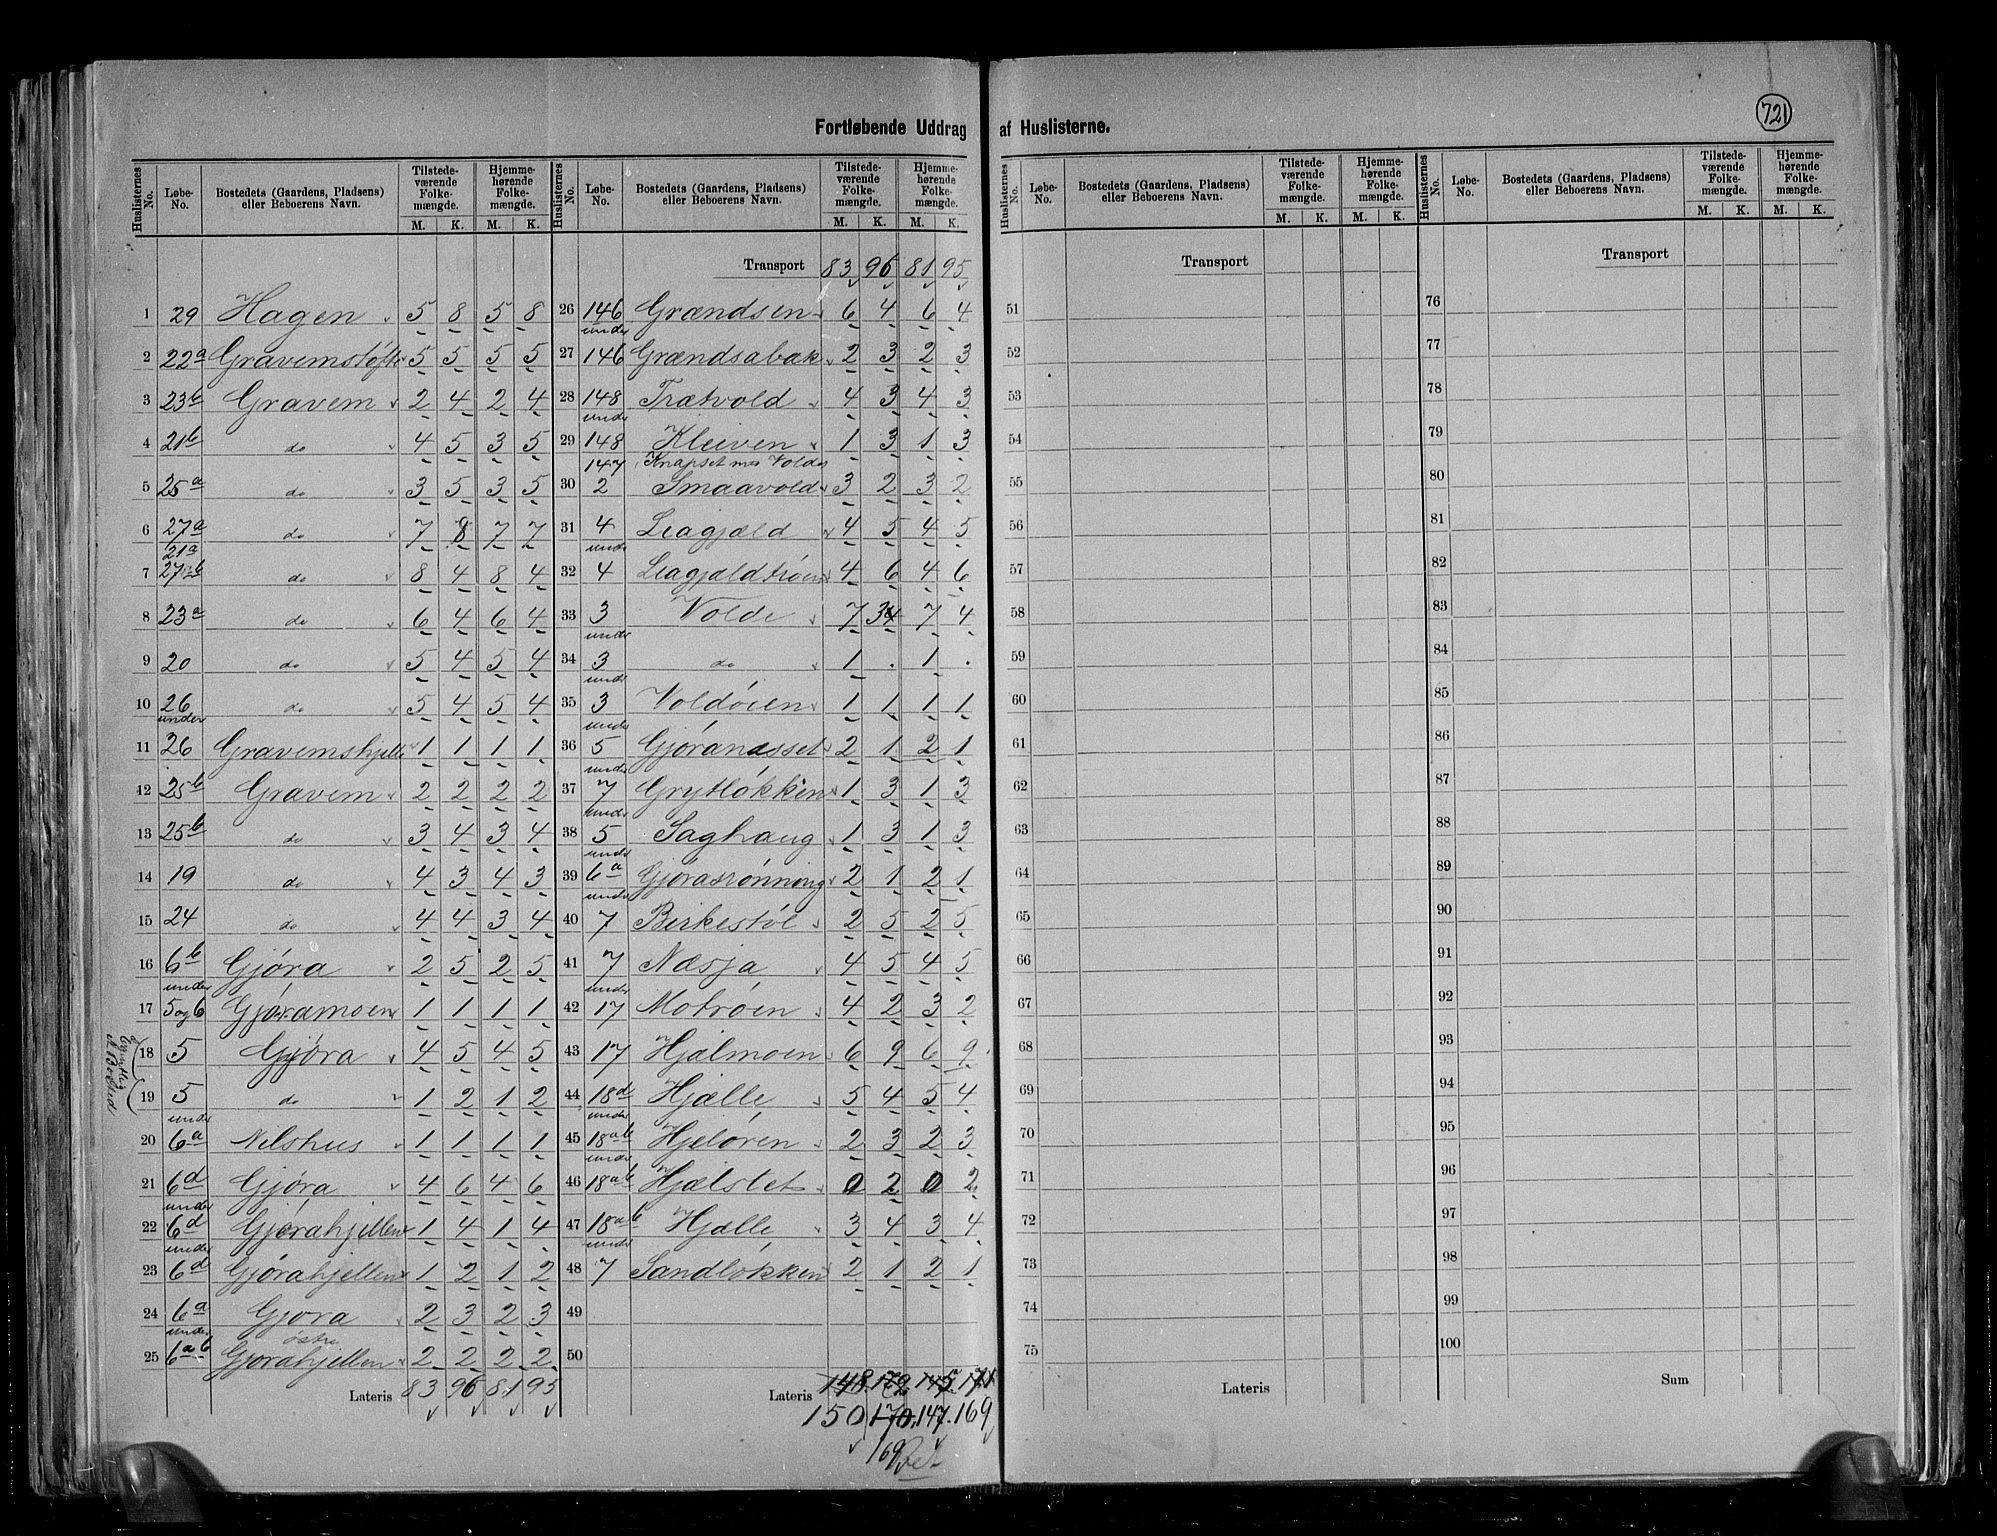 721
Fortløbende Uddrag af Huslisterne.
Huslisternes No. | Løbe-No. | Bostedets (Gaardens, Pladsens) eller Beboerens Navn. | Tilstedeværende Folkemængde. M. K. | Hjemmehørende Folkemængde. M. K.
1 29 Hagen 5 8 5 8
2 22a Gravemstøften 5 5 5 5
3 23b Gravem 2 4 2 4
4 21b do 4 5 3 5
5 25a do 3 5 3 5
6 27a do 7 8 7 7
21a
7 27b do 8 4 8 4
8 23a do 6 4 6 4
9 20 do 5 4 5 4
10 26 do 5 4 5 4
under
11 26 Gravemshjelle 1 1 1 1
12 25b Gravem 2 2 2 2
13 25b do 3 4 3 4
14 19 do 4 3 4 3
15 24 do 4 4 3 4
16 6b Gjøra 2 5 2 5
under
17 5og6 Gjøramoen 1 1 1 1
18 5 Gjøra 4 5 4 5
19 5 do 1 2 1 2
under
20 6a Nilshus 1 1 1 1
21 6d Gjøra 4 6 4 6
under
22 6d Gjørahjellen 1 4 1 4
under
23 6d Gjørahjellen 1 2 1 2
24 6a Gjøra 2 3 2 3
under østre
25 6ab Gjørahjellen 2 2 2 2
Lateris 83 96 81 95
Huslisternes No. | Løbe-No. | Bostedets (Gaardens, Pladsens) eller Beboerens Navn. | Tilstedeværende Folkemængde. M. K. | Hjemmehørende Folkemængde. M. K.
Transport 83 96 81 95
26 146 Grændsen 6 4 6 4
under
27 146 Grændsabak 2 3 2 3
28 148 Trætvold 4 3 4 3
under
29 148 Kleiven 1 3 1 3
147 Knapset m Volde
30 2 Smaavold 3 2 3 2
31 4 Leagjæld 4 5 4 5
under
32 4 Leagjældtrøen 4 6 4 6
33 3 Volde 7 34 7 4
under
34 3 do 1 . 1 .
under
35 3 Voldøien 1 1 1 1
under
36 5 Gjøranæsset 2 1 2 1
under
37 7 Grytløkken 1 3 1 3
under
38 5 Saghaug 1 3 1 3
under
39 6a Gjørasrønning 2 1 2 1
under
40 7 Birkestøl 2 5 2 5
41 7 Næsja 4 5 4 5
under
42 17 Motrøen 4 2 3 2
43 17 Hjælmoen 6 9 6 9
44 18d Hjælle 5 4 5 4
under
45 18ab Hjeløren 2 3 2 3
under
46 18ab Hjælslet 0 2 0 2
47 18ab Hjælle 3 4 3 4
under
48 7 Sandløkken 2 1 2 1
49
50
Lateris 148 172 145 171
150 170 147 169
169
Huslisternes No. | Løbe-No. | Bostedets (Gaardens, Pladsens) eller Beboerens Navn. | Tilstedeværende Folkemængde. M. K. | Hjemmehørende Folkemængde. M. K.
Transport
51
52
53
54
55
56
57
58
59
60
61
62
63
64
65
66
67
68
69
70
71
72
73
74
75
Lateris
Huslisternes No. | Løbe-No. | Bostedets (Gaardens, Pladsens) eller Beboerens Navn. | Tilstedeværende Folkemængde. M. K. | Hjemmehørende Folkemængde. M. K.
Transport
76
77
78
79
80
81
82
83
84
85
86
87
88
89
90
91
92
93
94
95
96
97
98
99
100
Sum